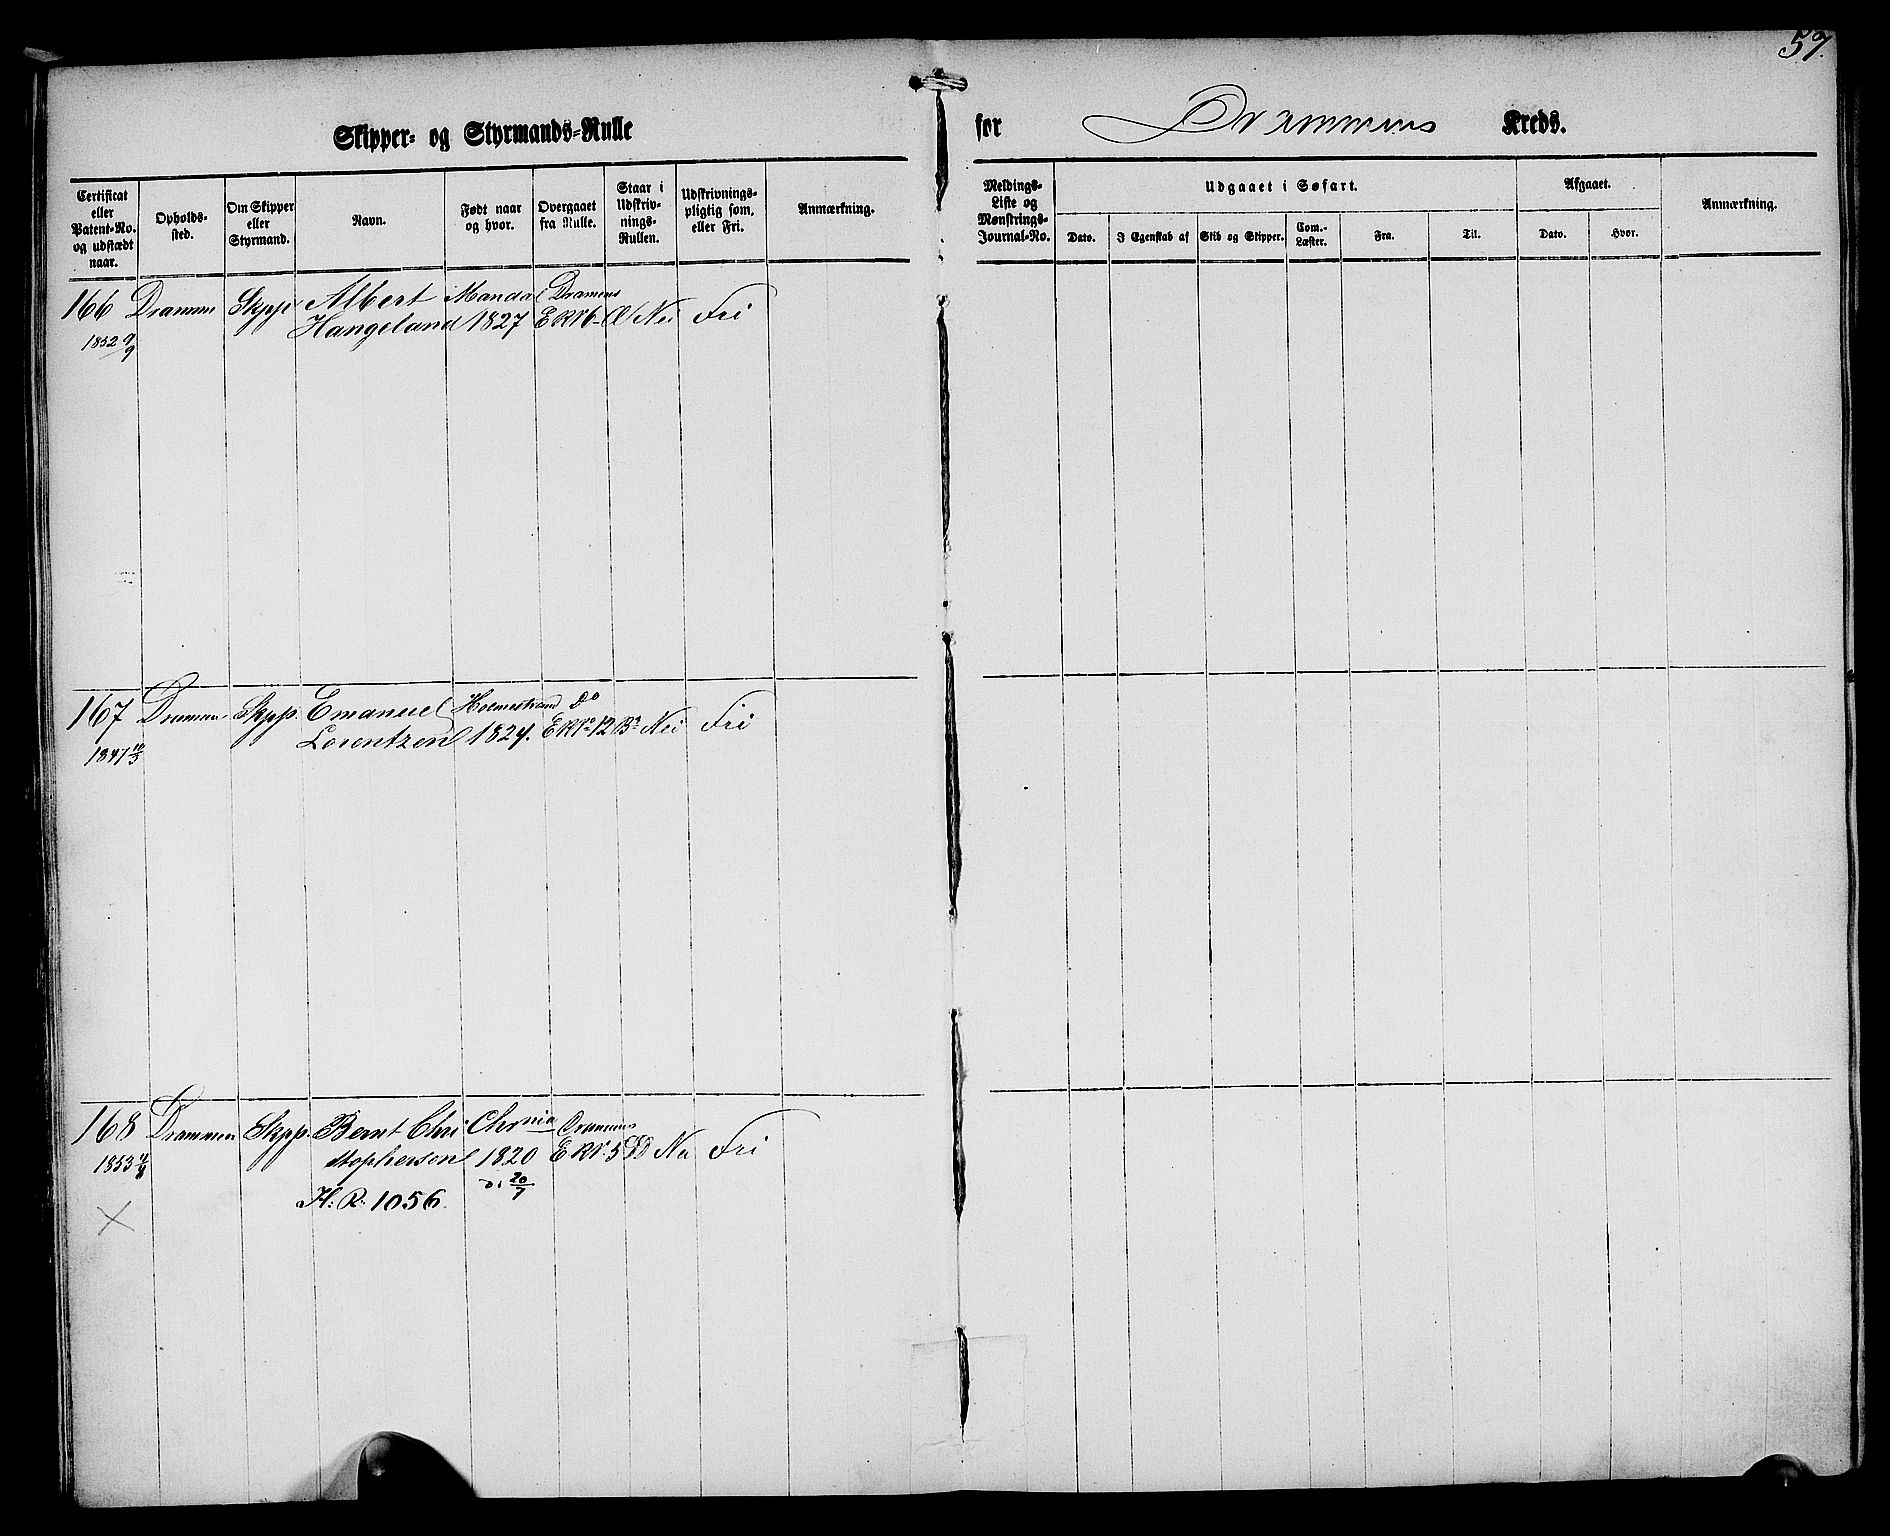 57.
Skipper- og Styrmands-Rulle
for Drammens Kreds.
Certificat eller Patent-No. og udstædt naar.
Opholdssted.
Om Skipper eller Styrmand.
Navn.
Født naar og hvor.
Overgaaet fra Rulle.
Staar i Udskrivnings-Rullen.
Udskrivningspligtig som, eller Fri.
Anmærkning.
Meldings-Liste og Mønstrings-Journal-No.
Udgaaet i Søfart.
Dato. I Egenskab af Skib og Skipper. Com.-Læster. Fra. Til.
Afgaaet.
Dato. Hvor.
Anmærkning.
166 Drammen Skpp Albert Mandal Drammens
Hangeland 1827 Nei Fri
1852 9/9
167 Drammen Skpp. Emanuel Holmestrand do
Lorentzen 1824. Nei Fri
1847 10/3
168 Drammen Skpp. Bernt Chri Chrnia Drammens
stophersen 1820 Fri
1853
20/7
H: R: 1056.